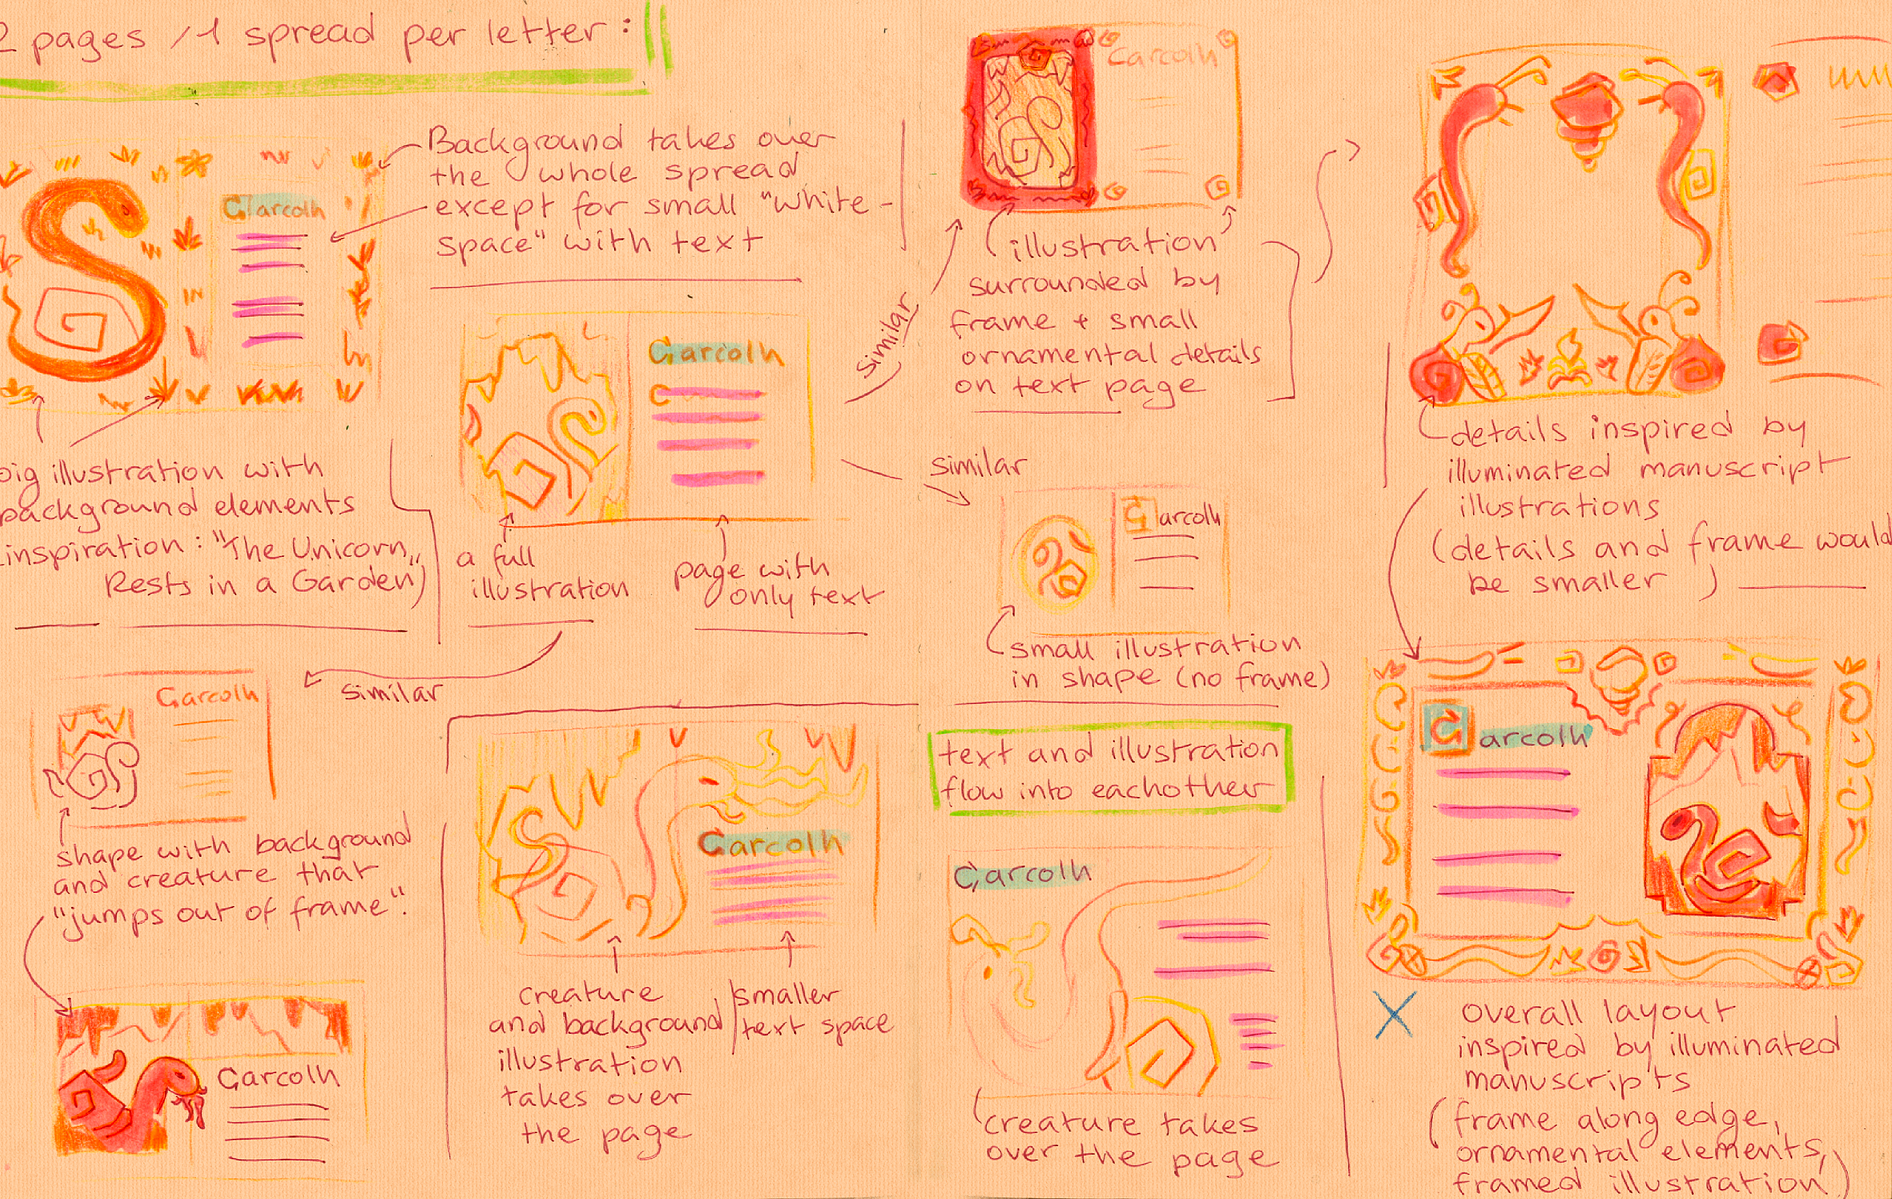 2 pages / 1 spread per letter :
Garcolh
Background takes over
the whole spread
except for small "white-
space" with text
big illustration with
background elements
inspiration : "The Unicorn
Rests in a Garden")
Garcolh
a full
illustration
page with
only text
similar
Garcolh
illustration
surrounded by
frame + small
ornamental details
on text page
similar
Garcolh
small illustration
in shape (no frame)
details inspired by
illuminated manuscript
illustrations
(details and frame would
be smaller )
similar
Garcolh
shape with background
and creature that
"jumps out of frame".
Garcolh
Garcolh
creature
and background
illustration
takes over
the page
smaller
text space
text and illustration
flow into eachother
Garcolh
creature takes
over the page
Garcolh
overall layout
inspired by illuminated
manuscripts
(frame along edge,
ornamental elements,
framed illustration)